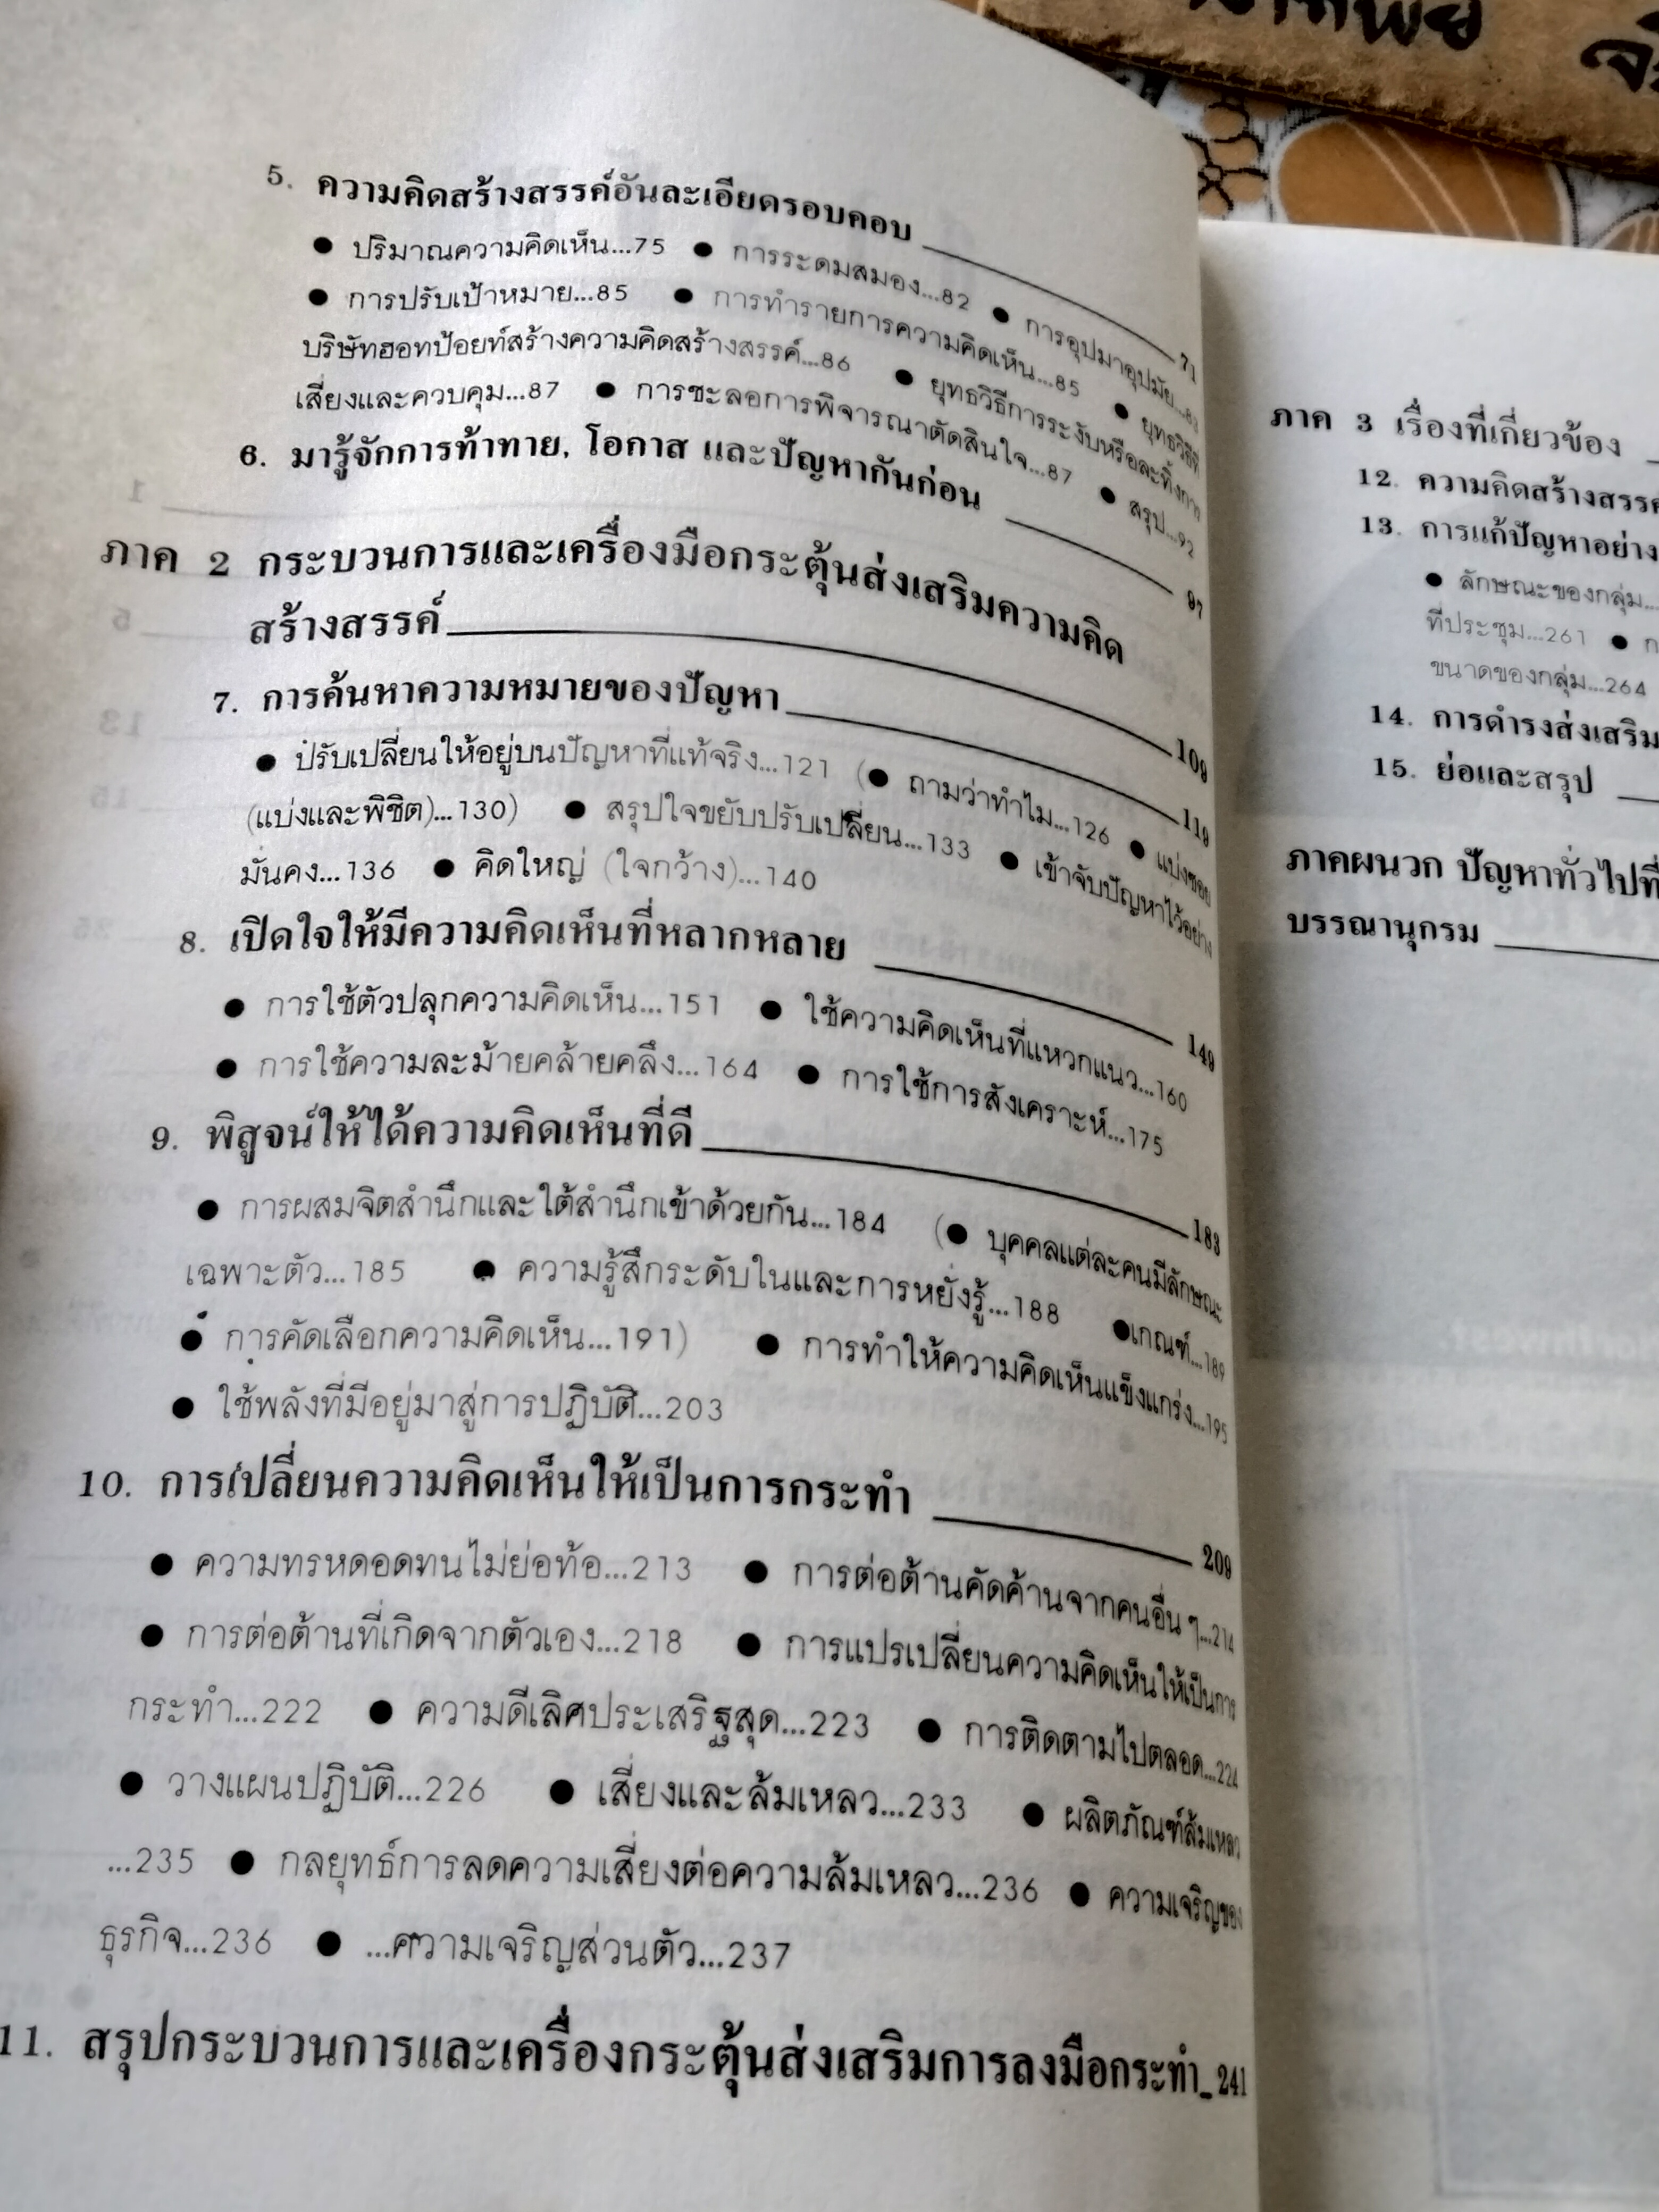 5. ความคิดสร้างสรรค์อันละเอียดรอบคอบ 71
● ปริมาณความคิดเห็น...75 ● การระดมสมอง...82 ● การอุปมาอุปมัย...
● การปรับเป้าหมาย...85 ● การทำรายการความคิดเห็น...85 ● ยุทธวิธีที่
บริษัทฮอทป้อยท์สร้างความคิดสร้างสรรค์...86 ● ยุทธวิธีการระงับหรือละทิ้งการ
เสี่ยงและควบคุม...87 ● การชะลอการพิจารณาตัดสินใจ...87 ● สรุป...92
6. มารู้จักการท้าทาย, โอกาส และปัญหากันก่อน 97
ภาค 2 กระบวนการและเครื่องมือกระตุ้นส่งเสริมความคิด
สร้างสรรค์ 109
7. การค้นหาความหมายของปัญหา 119
● ปรับเปลี่ยนให้อยู่บนปัญหาที่แท้จริง...121 (● ถามว่าทำไม...126 ● แบ่งซอย
(แบ่งและพิชิต)...130) ● สรุปใจขยับปรับเปลี่ยน...133 ● เข้าจับปัญหาไว้อย่าง
มั่นคง...136 ● คิดใหญ่ (ใจกว้าง)...140
8. เปิดใจให้มีความคิดเห็นที่หลากหลาย 149
● การใช้ตัวปลุกความคิดเห็น...151 ● ใช้ความคิดเห็นที่แหวกแนว...160
● การใช้ความละม้ายคล้ายคลึง...164 ● การใช้การสังเคราะห์...175
9. พิสูจน์ให้ได้ความคิดเห็นที่ดี 183
● การผสมจิตสำนึกและใต้สำนึกเข้าด้วยกัน...184 (● บุคคลแต่ละคนมีลักษณะ
เฉพาะตัว...185 ● ความรู้สึกระดับในและการหยั่งรู้...188 ●เกณฑ์...189
● การคัดเลือกความคิดเห็น...191) ● การทำให้ความคิดเห็นแข็งแกร่ง...195
● ใช้พลังที่มีอยู่มาสู่การปฏิบัติ...203
10. การเปลี่ยนความคิดเห็นให้เป็นการกระทำ 209
● ความทรหดอดทนไม่ย่อท้อ...213 ● การต่อต้านคัดค้านจากคนอื่น ๆ...214
● การต่อต้านที่เกิดจากตัวเอง...218 ● การแปรเปลี่ยนความคิดเห็นให้เป็นการ
กระทำ...222 ● ความดีเลิศประเสริฐสุด...223 ● การติดตามไปตลอด...224
● วางแผนปฏิบัติ...226 ● เสี่ยงและล้มเหลว...233 ● ผลิตภัณฑ์ล้มเหลว
...235 ● กลยุทธ์การลดความเสี่ยงต่อความล้มเหลว...236 ● ความเจริญของ
ธุรกิจ...236 ● ...ความเจริญส่วนตัว...237
11. สรุปกระบวนการและเครื่องกระตุ้นส่งเสริมการลงมือกระทำ 241
ภาค 3 เรื่องที่เกี่ยวข้อง
12. ความคิดสร้างสรรค์
13. การแก้ปัญหาอย่าง
● ลักษณะของกลุ่ม...
ที่ประชุม...261 ● ก
ขนาดของกลุ่ม...264
14. การดำรงส่งเสริม
15. ย่อและสรุป
ภาคผนวก ปัญหาทั่วไปที่
บรรณานุกรม